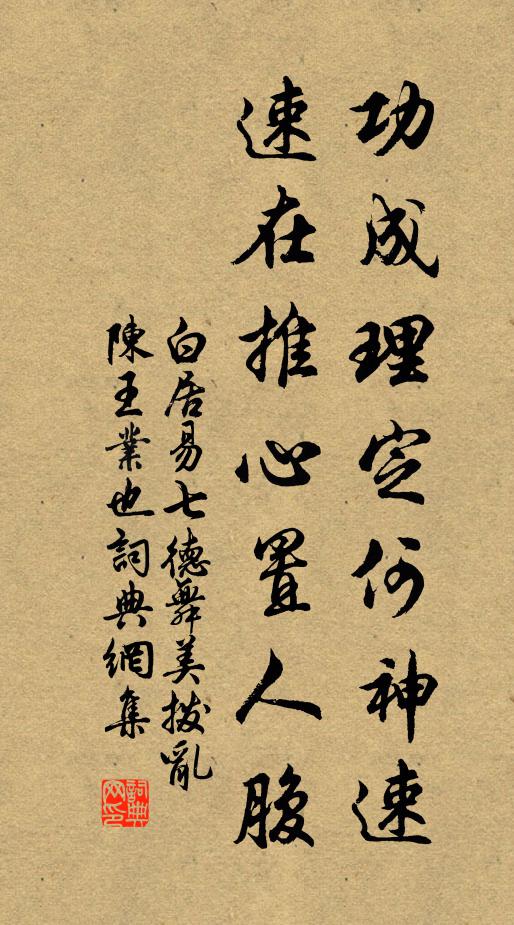 功成理定何神速
速在推心置人腹
白居易七德舞美撥亂
陳王業也詞典網集
詞典
网印